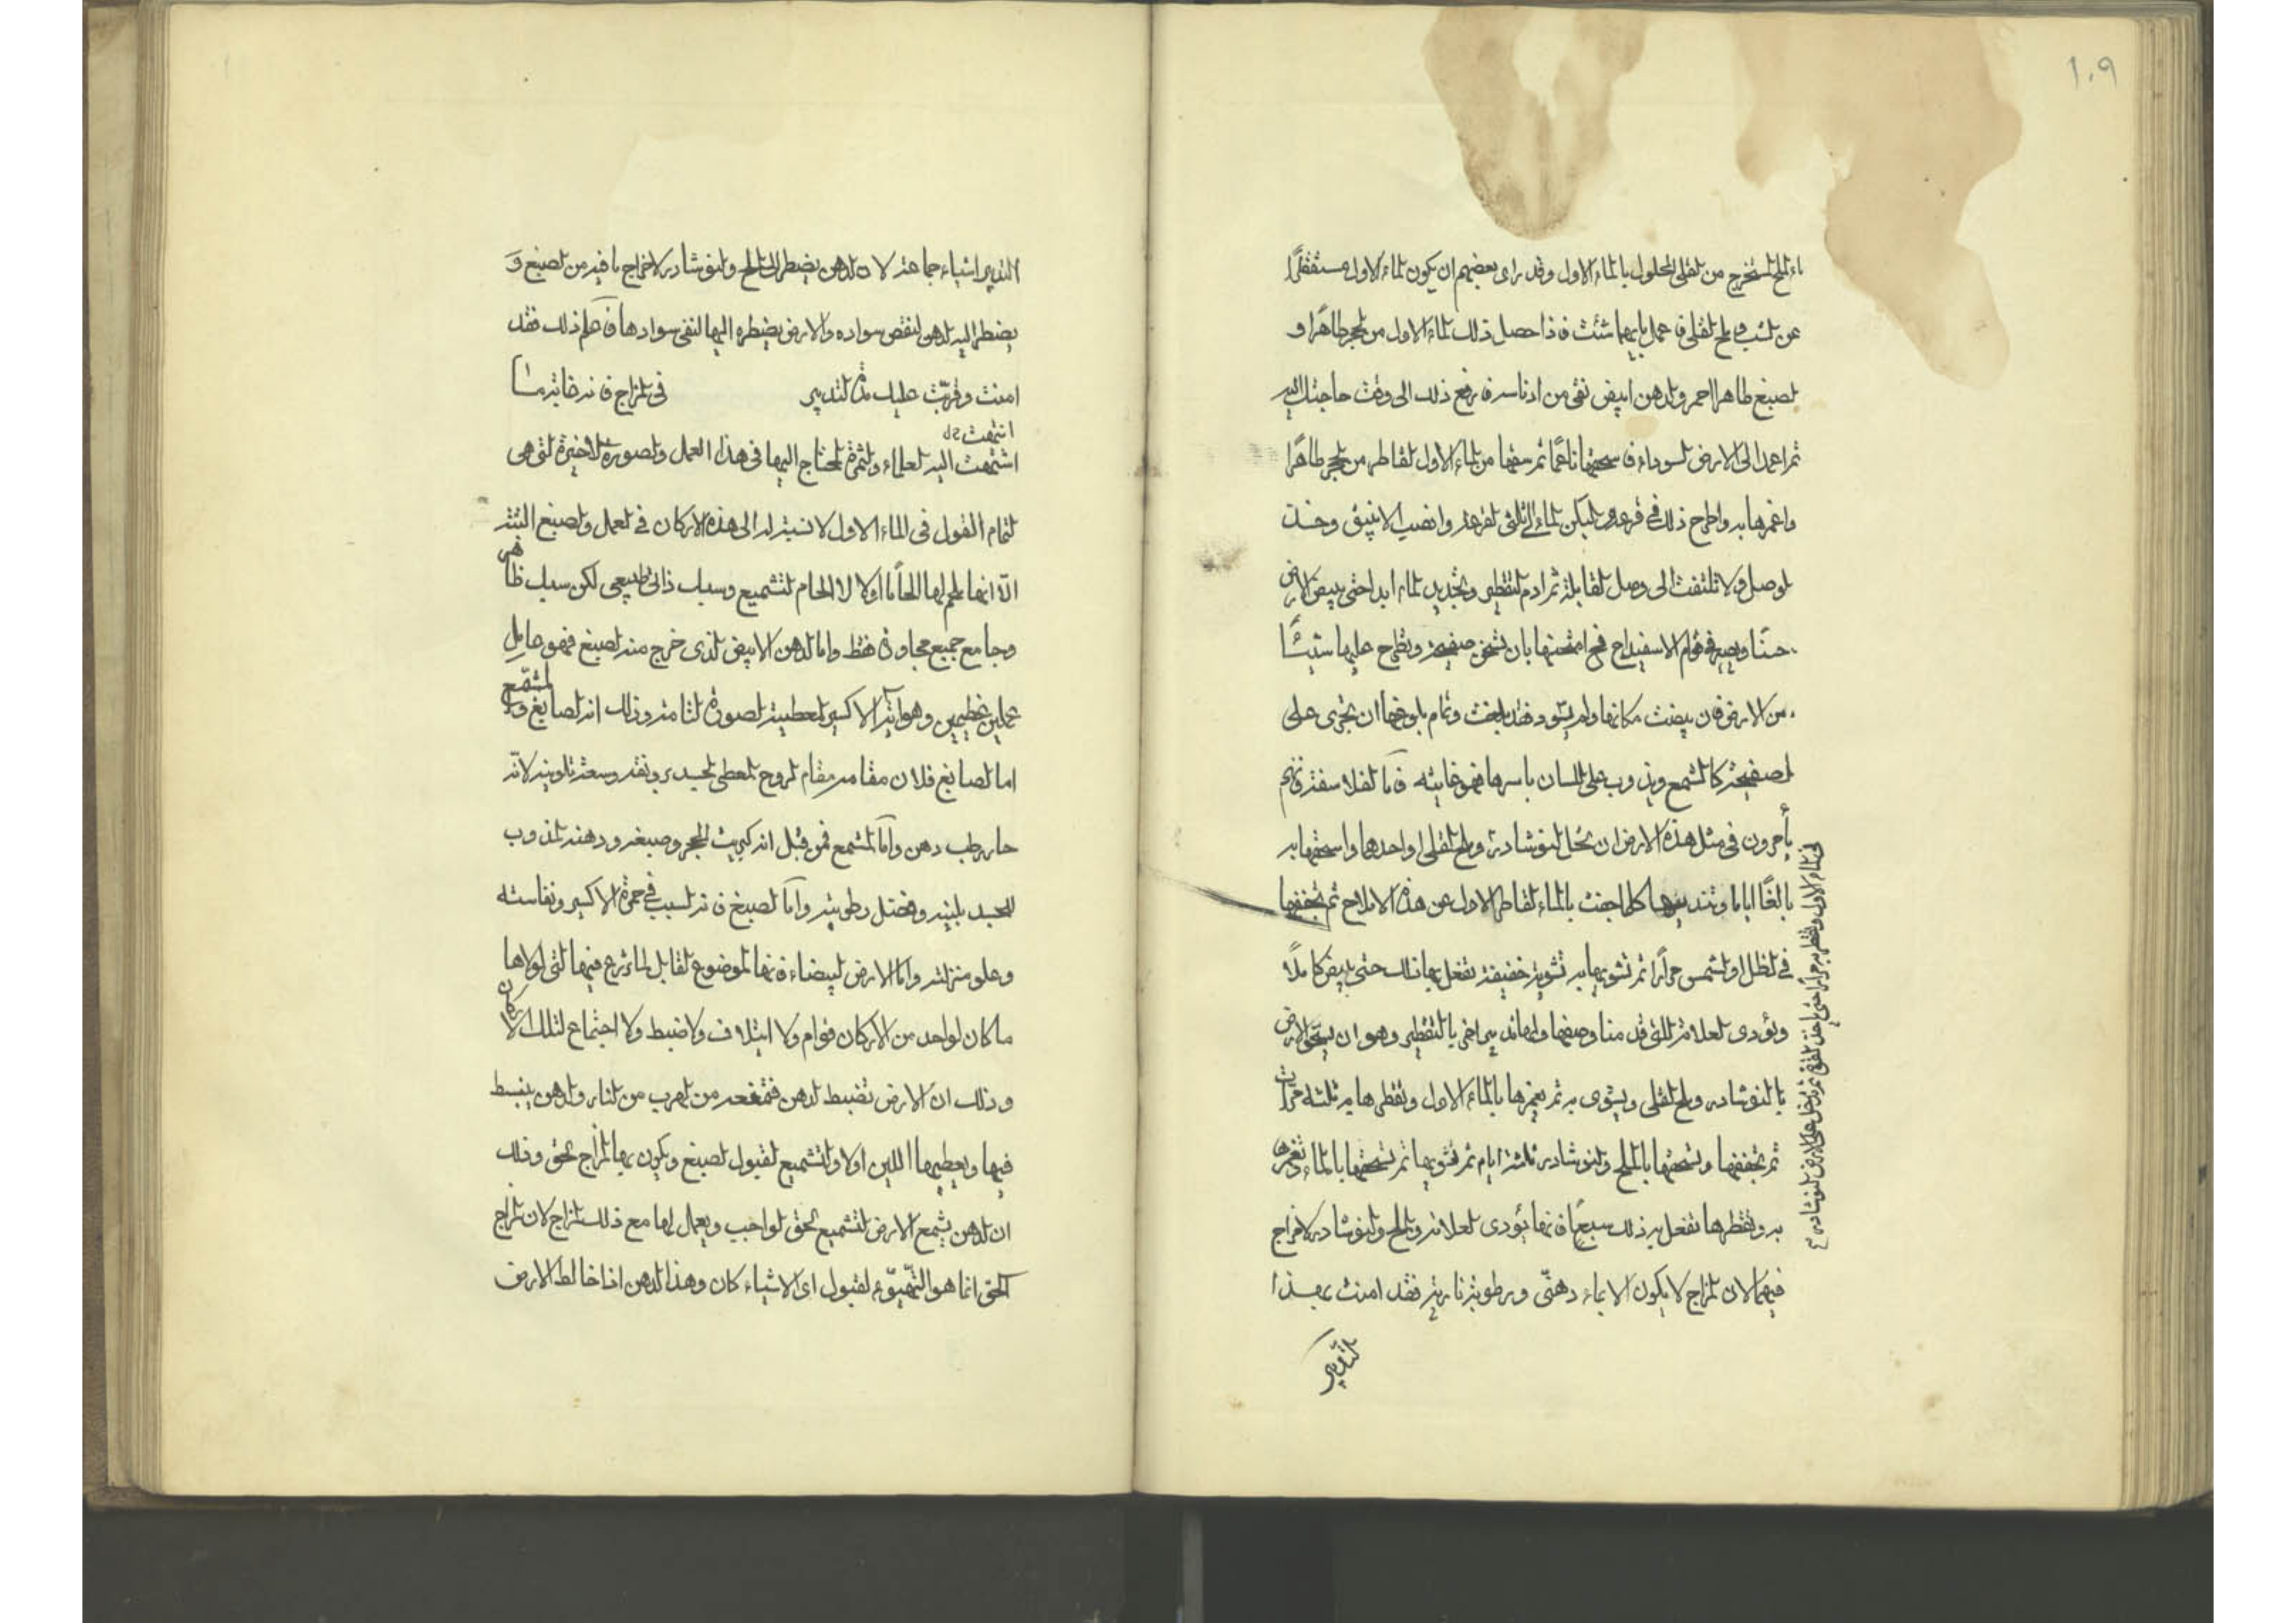 ١٠٩
ماء الملح المستخرج من القلى المحلول بالماء الاول وقد راى بعضهم ان يكون الماء الاول مستقطرًا
عن الشب وملح القلى فاعمل بايهما شئت فاذا حصل ذلك الماء الاول من الحجر طاهرًا و
الصبغ طاهرا احمر والدهن ابيض نقى من ادناسه فارفع ذلك الى وقت حاجتك اليه
ثم اعمد الى الارض السوداء فاسحقها ناعمًا ثم سقها من الماء الاول القاطر من الحجر طاهرًا
واغمرها به واطرح ذلك فى قرعة وليكن الماء الى ثلثى القرعة وانصب الانبيق وخذ
الوصل ولا تلتفت الى وصل القابلة ثم ادم التقطير وتجديد الماء ابدا حتى يبيض الارض
حسنًا ويصير فى قوام الاسفيداج فح امتحنها بان تحمى صفيحة وتطرح عليها شيئًا
من الارض فان بيضت مكانها ولم يسود فقد بلغت وتمام بلوغها ان تجرى على
الصفيحة كالشمع ويذوب على اللسان باسرها فهو غايته فاما الفلاسفة فانهم
يأمرون فى مثل هذه الارض ان تحل النوشادر وملح القلى او احدهما واسحقها به
بالغًا اياما وتنديها كلما جفت بالماء القاطر الاول عن هذه الاملاح ثم تجففها
فى الظل او الشمس مرارًا ثم تشويها به تشوية خفيفة تفعل بها ذلك حتى يبيض كاملًا
ويؤدى العلامة التى قدمنا وصفها ولها تدبير اخر بالتقطير وهو ان يسحق الارض
بالنوشادر وملح القلى ويشوى به ثم يغمرها بالماء الاول وتقطرها به ثلثة مرات
ثم تجففها وتسحقها بالملح والنوشادر ثلثة ايام ثم تشويها ثم تسحقها بالماء وتغمرها
به وتقطرها تفعل به ذلك سبعًا فانها يؤدى العلامة والملح والنوشادر لاخراج
فيهما لان المزاج لا يكون الا بماء دهنى ورطوبة نارية فقد امنت بهذا
التدبير
فى الماء الاول وتقطر به مرارًا حتى ياخذ ثم تدخل على الارض النوشادر
التدبير اشياء جماعة لان الدهن يضطر الى الملح والنوشادر لاخراج ما فيه من الصبغ وَ
يضطر اليه الدهن لنقص سواده والارض يضطره اليها لنفى سوادها فاعلم ذلك فقد
امنت وقربت عليك مدة التدبير فى المزاج فانه غاية ما
انتهت
اشتهت اليه العلماء والثمرة المحتاج اليها فى هذا العمل والصورة الاخيرة التى هى
التمام القول فى الماء الاول لا نسبة له الى هذه الاركان فى العمل والصبغ البتة
الّا انها يلحم لها الحامًا اولا لا الحام التشميع وسبب ذاتى طبيعى لكن سبب ظاهر
وجامع جميع مجاورة فقط واما الدهن الابيض الذى خرج منه الصبغ فهو عامل
عملين عظيمين وهو اية الاكسير المعطية الصورة التامة وذلك انه الصابغ والمشمّع
اما الصابغ فلان مقامه مقام الروح المعطى الجسد رونقه وسعة تلوينه لانّه
حار رطب دهن وامّا المشمع فمن قبل انه كبريت الحجر وصبغه ودهنه الذوب
للجسد بلينه وفضل رطوبته وامّا الصبغ فانه السبب فى حمرة الاكسير ونفاسته
وعلو منزلته واما الارض البيضاء فانها الموضوع لقابل الماء زرع فيها التى لولاها
ما كان لواحد من الاركان قوام ولا ايتلاف ولا ضبط ولا اجتماع لتلك الاركان
وذلك ان الارض تضبط الدهن فتمنعه من الهرب من النار والدهن ينبسط
فيها ويعطيها اللين اولا والتشميع لقبول الصبغ ويكون بها المزاج الحق وذلك
ان الدهن يشمع الارض التشميع الحق الواجب ويعمل لها مع ذلك المزاج لان المزاج
الحق انما هو التهيّوء لقبول اى الاشياء كان وهذا الدهن اذا خالط الارض